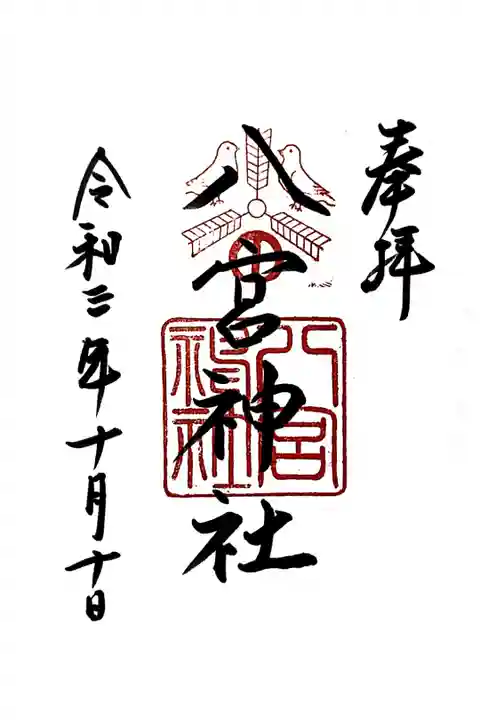 奉拝
八宮神社
八宮
神社
令和三年十月十日